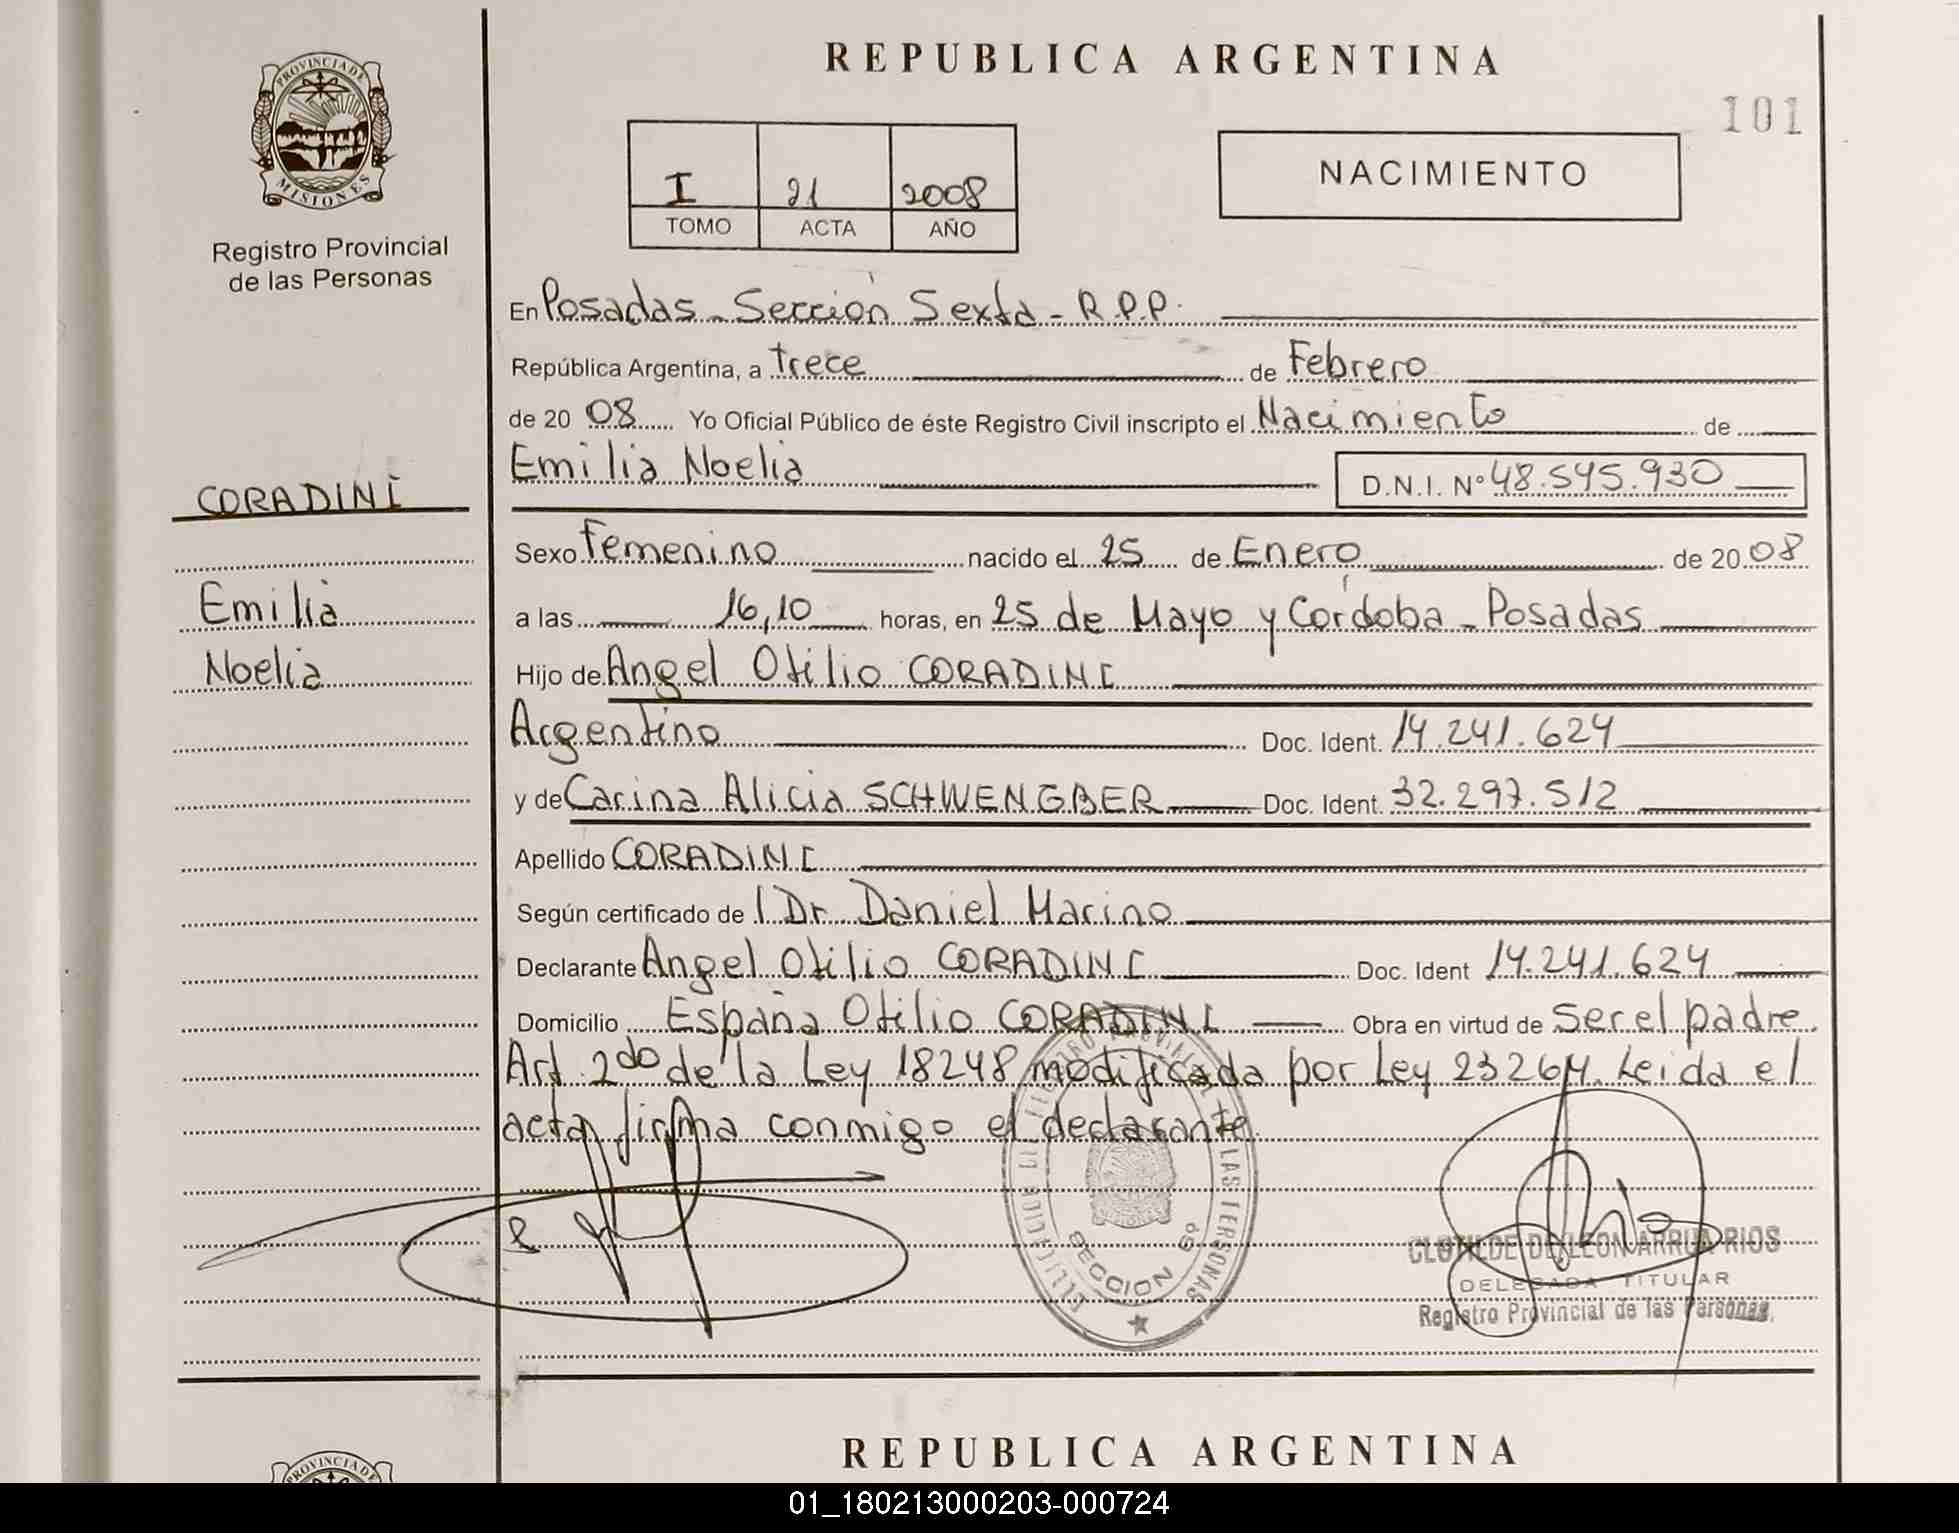 REPUBLICA ARGENTINA
101
PROVINCIA DE
MISIONES
Registro Provincial
de las Personas
I 21 2008
TOMO ACTA AÑO
NACIMIENTO
En Posadas - Sección Sexta - R.P.P.
República Argentina, a trece de Febrero
de 2008 Yo Oficial Público de éste Registro Civil inscripto el Nacimiento de
Emilia Noelia D.N.I. Nº 48.545.930
CORADINI
Emilia
Noelia
Sexo Femenino nacido el 25 de Enero de 2008
a las 16,10 horas, en 25 de Mayo y Córdoba - Posadas
Hijo de Angel Otilio CORADINI
Argentino Doc. Ident. 14.241.624
y de Carina Alicia SCHWENGBER Doc. Ident. 32.297.512
Apellido CORADINI
Según certificado de l Dr Daniel Marino
Declarante Angel Otilio CORADINI Doc. Ident 14.241.624
Domicilio España Otilio CORADINI Obra en virtud de Ser el padre.
Art. 2do de la Ley 18248 modificada por Ley 23264. Leida el
acta, firma conmigo el declarante.
SECCION 6º
CLOTILDE DE LEON ARRUA RIOS
DELEGADA TITULAR
Registro Provincial de las Personas
PROVINCIA DE
REPUBLICA ARGENTINA
01_180213000203-000724